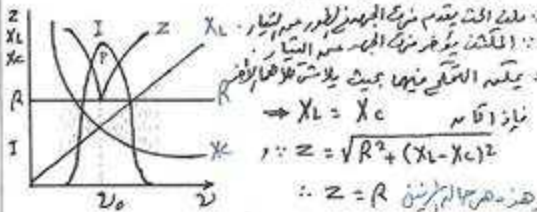 Z
X_L
X_C
R
I
I
P
Z
X_L
R
X_C
ν₀
ν
∵ ملف الحث يقدم فرق الجهد في الطور عن التيار.
∵ المكثف يؤخر فرق الجهد عن التيار.
يمكن التحكم فيها بحيث يلاشى كلاهما الآخر
⇒ X_L = X_C
∵ Z = √R² + (X_L-X_C)²
∴ Z = R وهذه هي حالة الرنين